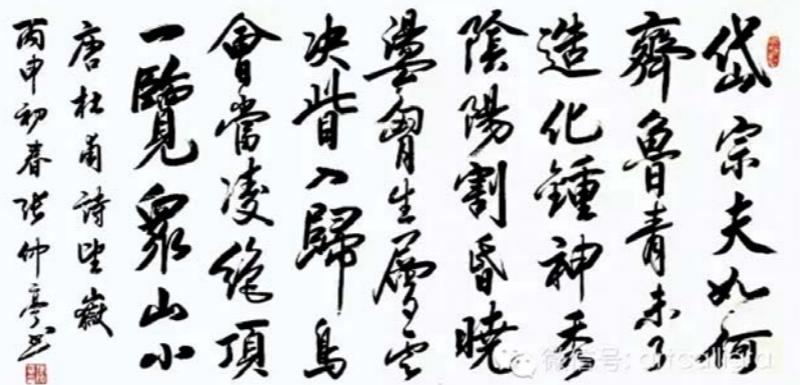 岱宗夫如何
齊魯青未了
造化鍾神秀
陰陽割昏曉
盪胷生層雲
决眥入歸鳥
會當凌絶頂
一覽眾山小
唐杜甫詩望嶽
丙申初春張仲亭书
微信号: